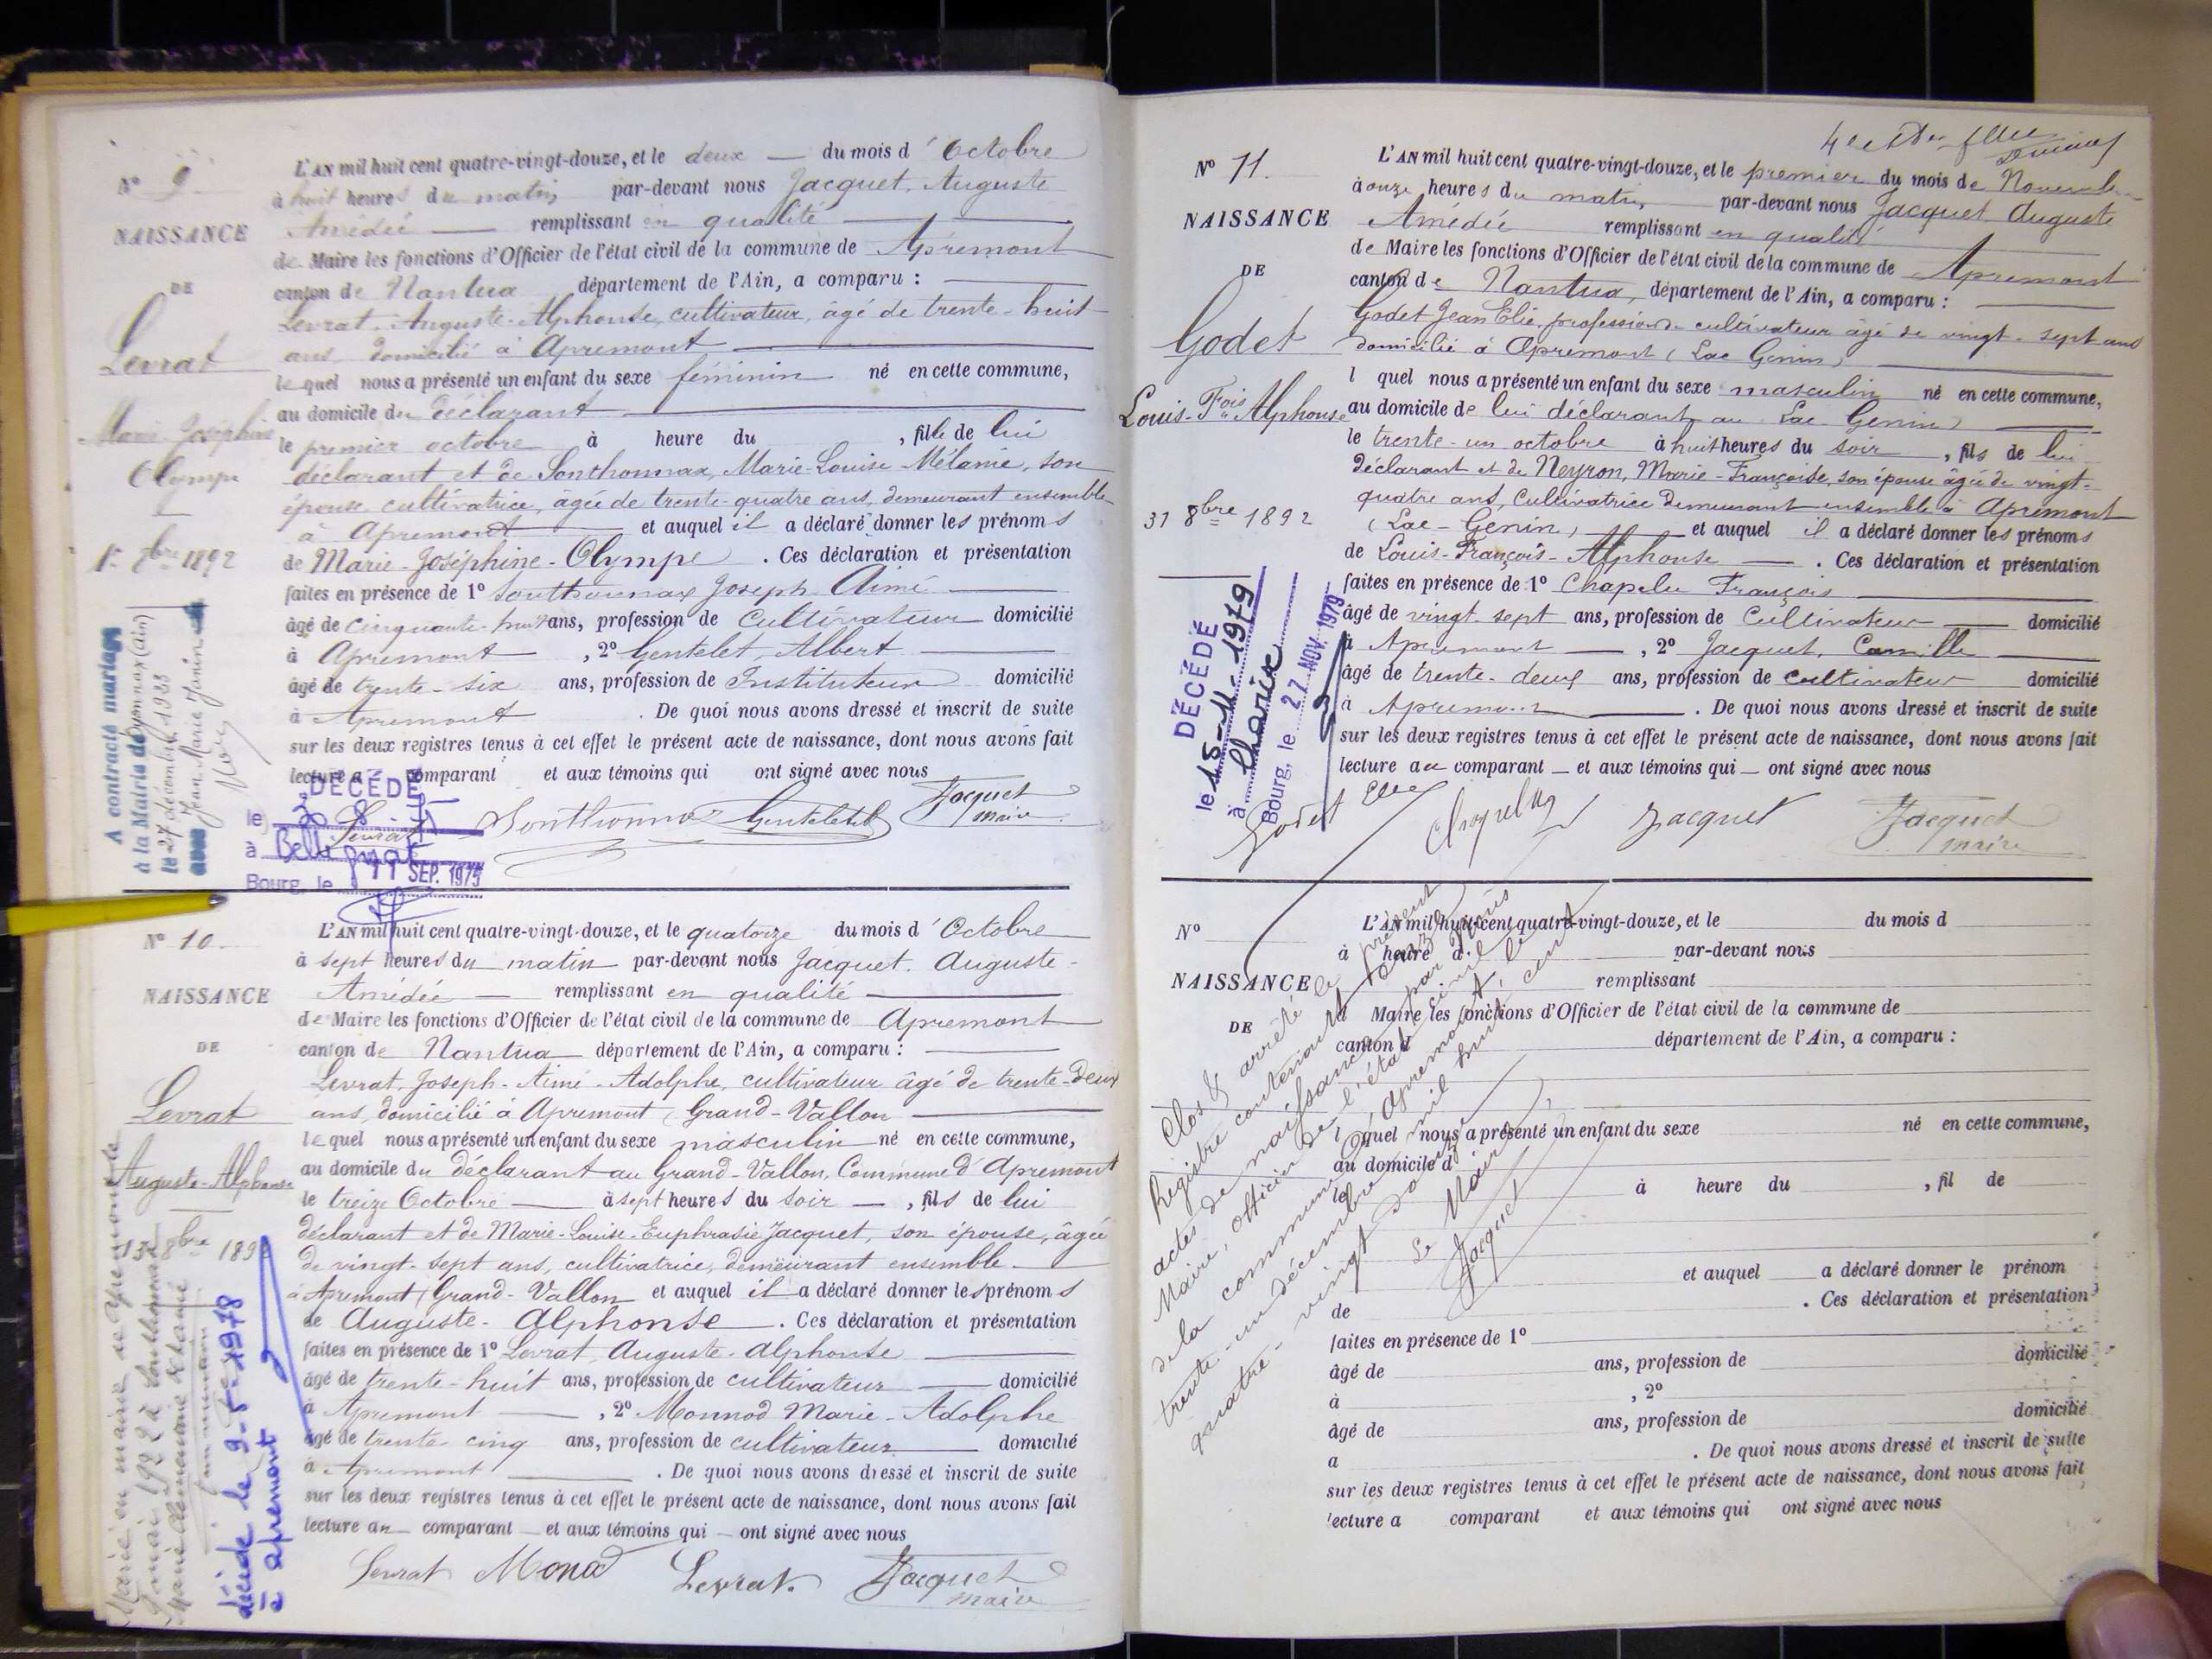 N° 9
NAISSANCE
DE
Levrat
Marie-Joséphine
Olympe
1er 8bre 1892
A contracté mariage
à la Mairie de Oyonnax (Ain)
le 27 décembre 1933
avec Jean Marie Janin
L'AN mil huit cent quatre-vingt-douze, et le deux du mois d'Octobre
à huit heures du matin par-devant nous Jacquet, Auguste
Amédée remplissant en qualité
de Maire les fonctions d'Officier de l'état civil de la commune de Apremont
canton de Nantua département de l'Ain, a comparu :
Levrat, Auguste-Alphonse, cultivateur, âgé de trente-huit
ans, domicilié à Apremont
lequel nous a présenté un enfant du sexe féminin né en cette commune,
au domicile du déclarant
le premier octobre à heure du , fille de lui
déclarant et de Sonthonnax, Marie-Louise-Mélanie, son
épouse, cultivatrice, âgée de trente-quatre ans, demeurant ensemble
à Apremont et auquel il a déclaré donner les prénoms
de Marie-Joséphine-Olympe. Ces déclaration et présentation
faites en présence de 1° Sonthonnax Joseph Aimé
âgé de cinquante-huit ans, profession de Cultivateur domicilié
à Apremont , 2° Gentelet, Albert
âgé de trente-six ans, profession de Instituteur domicilié
à Apremont . De quoi nous avons dressé et inscrit de suite
sur les deux registres tenus à cet effet le présent acte de naissance, dont nous avons fait
lecture a comparant et aux témoins qui ont signé avec nous
DÉCÉDÉ
le 3 8
à Bellignat
Bourg, le 11 SEP. 1975
Levrat Sonthonnax Gentelet Jacquet
maire
N° 10
NAISSANCE
DE
Levrat
Auguste-Alphonse
13 8bre 189
Marié en mairie
mai 1922 à Sonthonnax
décédé le 9-5-1978
à apremont
L'AN mil huit cent quatre-vingt-douze, et le quatorze du mois d'Octobre
à sept heures du matin par-devant nous Jacquet, Auguste
Amédée remplissant en qualité
de Maire les fonctions d'Officier de l'état civil de la commune de Apremont
canton de Nantua département de l'Ain, a comparu :
Levrat, Joseph-Aimé-Adolphe, cultivateur âgé de trente-deux
ans, domicilié à Apremont (Grand-Vallon
lequel nous a présenté un enfant du sexe masculin né en cette commune,
au domicile du déclarant au Grand-Vallon, Commune d'Apremont
le treize Octobre à sept heures du soir , fils de lui
déclarant et de Marie-Louise-Euphrasie Jacquet, son épouse, âgée
de vingt-sept ans, cultivatrice, demeurant ensemble
à Apremont (Grand-Vallon et auquel il a déclaré donner les prénoms
de Auguste-Alphonse. Ces déclaration et présentation
faites en présence de 1° Levrat, Auguste-Alphonse
âgé de trente-huit ans, profession de cultivateur domicilié
à Apremont , 2° Monnod Marie-Adolphe
âgé de trente cinq ans, profession de cultivateur domicilié
à Apremont . De quoi nous avons dressé et inscrit de suite
sur les deux registres tenus à cet effet le présent acte de naissance, dont nous avons fait
lecture au comparant et aux témoins qui ont signé avec nous
Levrat Monod Levrat Jacquet
maire
N° 11.
NAISSANCE
DE
Godet
Louis-Fois Alphonse
31 8bre 1892
DÉCÉDÉ
le 18-11-1979
à Charix
Bourg, le 27 NOV. 1979
L'AN mil huit cent quatre-vingt-douze, et le premier du mois de Novembre
à onze heures du matin par-devant nous Jacquet, Auguste
Amédée remplissant en qualité
de Maire les fonctions d'Officier de l'état civil de la commune de Apremont
canton de Nantua, département de l'Ain, a comparu :
Godet Jean Elie, profession de cultivateur âgé de vingt-sept ans
domicilié à Apremont (Lac Genin)
l quel nous a présenté un enfant du sexe masculin né en cette commune,
au domicile de lui déclarant au Lac Genin)
le trente-un octobre à huit heures du soir , fils de lui
déclarant et de Neyron, Marie-Françoise, son épouse âgée de vingt-
quatre ans, Cultivatrice demeurant ensemble à Apremont
(Lac-Genin) et auquel il a déclaré donner les prénoms
de Louis-François-Alphonse . Ces déclaration et présentation
faites en présence de 1° Chapelu François
âgé de vingt-sept ans, profession de Cultivateur domicilié
à Apremont , 2° Jacquet, Camille
âgé de trente-deux ans, profession de cultivateur domicilié
à Apremont . De quoi nous avons dressé et inscrit de suite
sur les deux registres tenus à cet effet le présent acte de naissance, dont nous avons fait
lecture au comparant et aux témoins qui ont signé avec nous
Godet Elie Jacquet Jacquet
maire
N°
NAISSANCE
DE
L'AN mil huit cent quatre-vingt-douze, et le du mois d
à heure d par-devant nous
remplissant
d Maire les fonctions d'Officier de l'état civil de la commune de
canton d département de l'Ain, a comparu :
l quel nous a présenté un enfant du sexe né en cette commune,
au domicile d
le à heure du , fil de
et auquel a déclaré donner le prénom
de . Ces déclaration et présentation
faites en présence de 1°
âgé de ans, profession de domicilié
à , 2°
âgé de ans, profession de domicilié
a . De quoi nous avons dressé et inscrit de suite
sur les deux registres tenus à cet effet le présent acte de naissance, dont nous avons fait
lecture a comparant et aux témoins qui ont signé avec nous
Clos & arrêté le présent
Registre contenant onze
actes de naissance par Nous
Maire, officier de l'état civil de
de la commune d'Apremont, le
trente-un décembre mil huit cent
quatre-vingt douze
Le Maire,
Jacquet